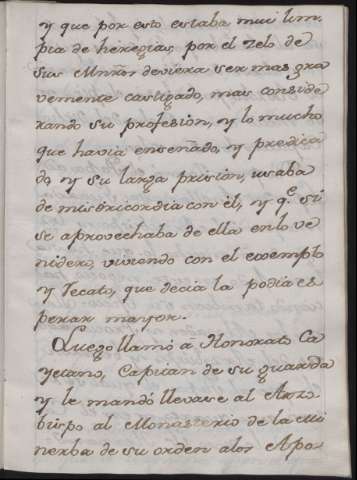 y que por esto estaba mui lim-
pia de heregias, por el zelo de
sus Mnros deviera ser mas gra
vemente castigado, mas conside
rando su profesion, y lo mucho
que havia enseñado, y predica
do, y su larga prision, usaba
de misericordia con él, y q.e si
se aprovechaba de ella en lo ve
nidero, viviendo con el exemplo
y recato, que decia la podia es
perar mayor.
Luego llamó á Honorato Ca
yetano, Capitan de su guarda
y le mandó llevase al Arzo
bispo al Monasterio de la Mi
nerba de su orden a los Apo-